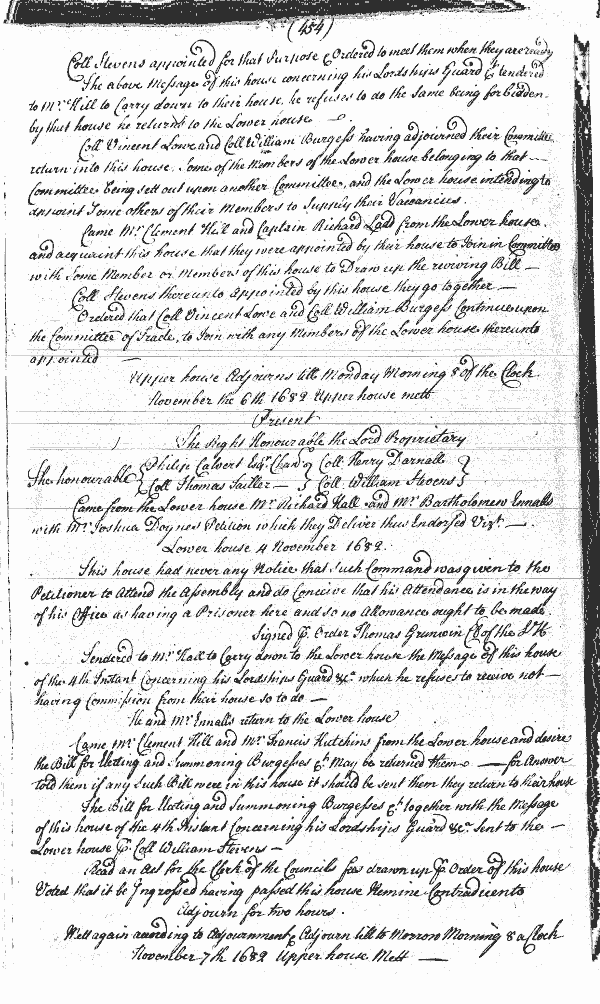 (454)
Coll Stevens appointed for that Purpose & Ordered to meet them when they are ready
The above Message of this house concerning his Lordships Guard &c. tendered
to Mr. Hill to Carry down to their house, he refuses to do the same being forbidden
by that house he returns to the Lower house
Coll Vincent Lowe and Coll William Burgess having adjourned their Committee
return into this house. Some of the Members of the Lower house belonging to that
Committee being sett out upon another Committee, and the Lower house intending to
appoint Some others of their Members to Supply their Vacancies.
Came Mr. Clement Hill and Captain Richard Ladd from the Lower house.
and acquaint this house that they were appointed by their house to Join in Committee
with Some Member or Members of this house to Draw up the reviving Bill
Coll Stevens thereunto Appointed by this house they go together
Ordered that Coll Vincent Lowe and Coll William Burgess Continue upon
the Committee of Trade, to Join with any Members of the Lower house thereunto
appointed
Upper house Adjourns till Monday Morning 8 of the Clock
November the 6th 1682 Upper house mett
Present
The Right Honourable the Lord Proprietary
The honourable { Philip Calvert Esqr. Chanr. } Coll Henry Darnall }
{ Coll Thomas Tailler } Coll. William Stevens }
Came from the Lower house Mr. Richard Hall and Mr. Bartholomew Ennalls
with Mr. Joshua Doynes Petition which they Deliver thus Endorsed Vizt.
Lower house 4 November 1682.
This house had never any Notice that Such Command was given to the
Petitioner to Attend the Assembly and do Conceive that his Attendance is in the way
of his Office as having a Prisoner here and so no Allowance ought to be made.
Signed p Order Thomas Grunwin Cl of the L H
Tendered to Mr. Hall to Carry down to the Lower house the Message of this house
of the 4th Instant Concerning his Lordships Guard &c. which he refuses to receive not
having Commission from their house so to do
He and Mr. Ennalls return to the Lower house
Came Mr. Clement Hill and Mr. Francis Hutchins from the Lower house and desire
the Bill for Electing and Summoning Burgesses &c. May be returned them for Answer
told them if any Such Bill were in this house it should be sent them they return to their house
The Bill for Electing and Summoning Burgesses &c. together with the Message
of this house of the 4th Instant Concerning his Lordships Guard &c. Sent to the
Lower house p. Coll William Stevens
Read an Act for the Clerk of the Councils fees drawn up p Order of this house
Voted that it be Ingrossed having passed this house Nemine Contradicente
Adjourn for two hours.
Mett again according to Adjournment & Adjourn till to Morrow Morning 8 a Clock
November 7th 1682 Upper house Mett